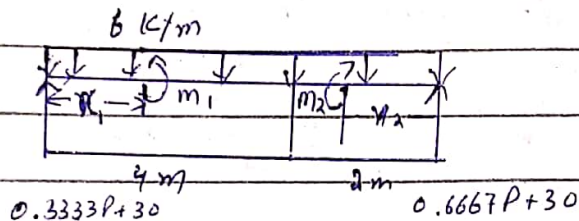 6 K/m
x₁ m₁ m₂ x₂
4 m 2 m
0.3333P+30 0.6667P+30